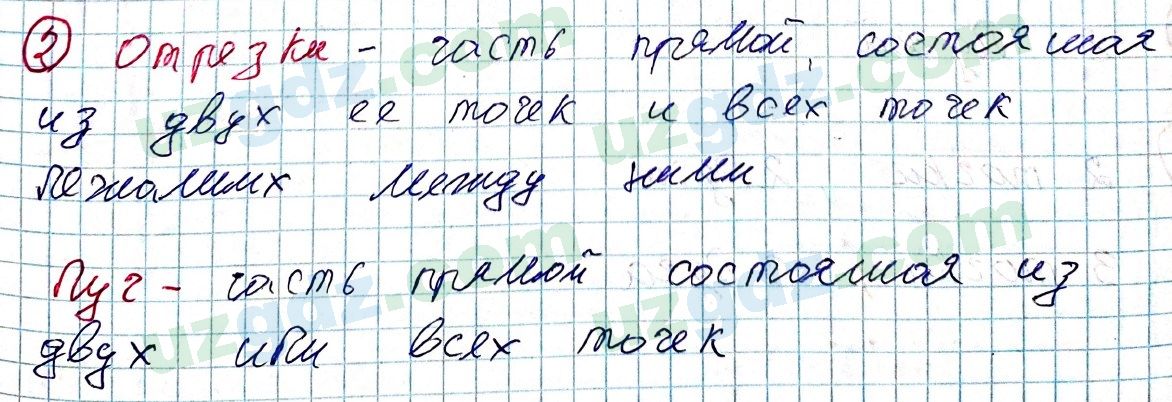 ② Отрезки - часть прямой, состояшая
из двух ее точек и всех точек
лежаших между ними
Луч - часть прямой состояшая из
двух или всех точек
uzgdz.com
uzgdz.com
uzgdz.com
uzgdz.com